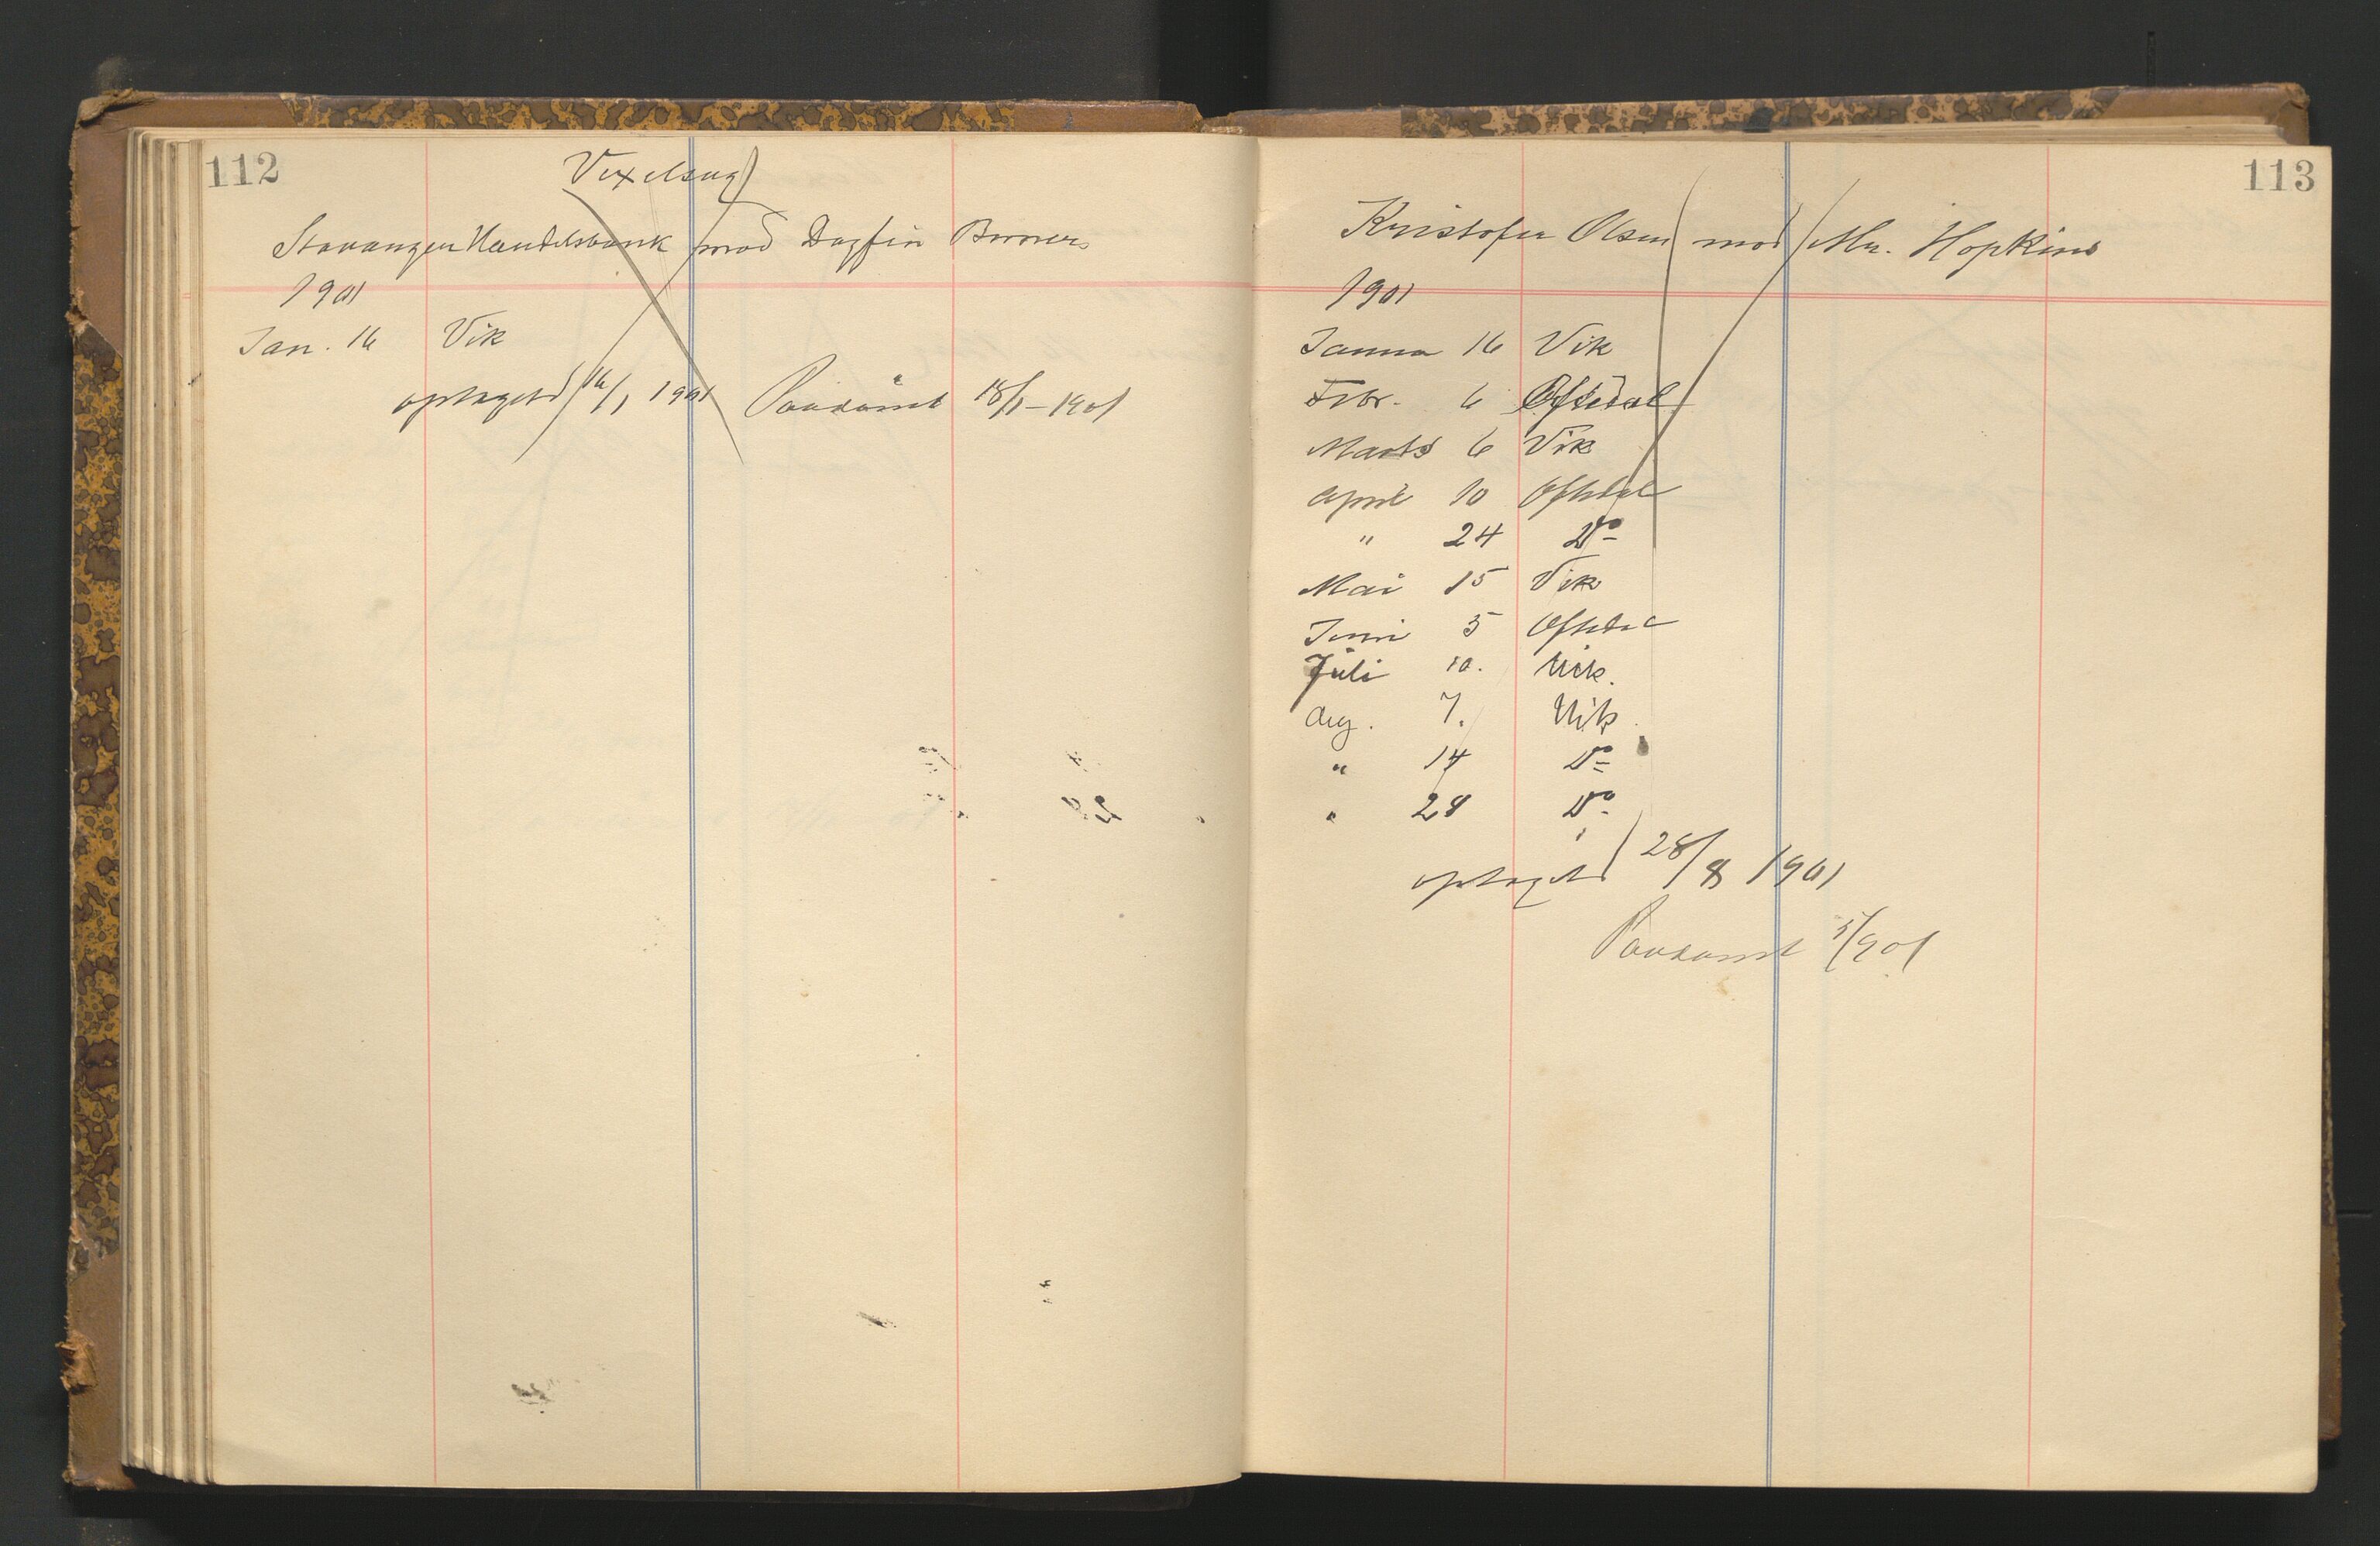 112
Vexelsag
Stavanger Handelsbank mod Dagfin
1901
Jan. 16 Vik
optaget 16/1 1901 Paadömt 18/1-1901
113
Kristofer Olsen mod Mr. Hopkins
1901
Janua 16 Vik
Febr. 6 Oftedal
Marts 6 Vik
April 10 Oftedal
" 24 Do
Mai 15 Vik
Juni 5 Oftedal
Juli 10. Vik.
Aug. 7. Vik
" 14 Do
" 28 Do
optaget 28/8 1901
Paadömt